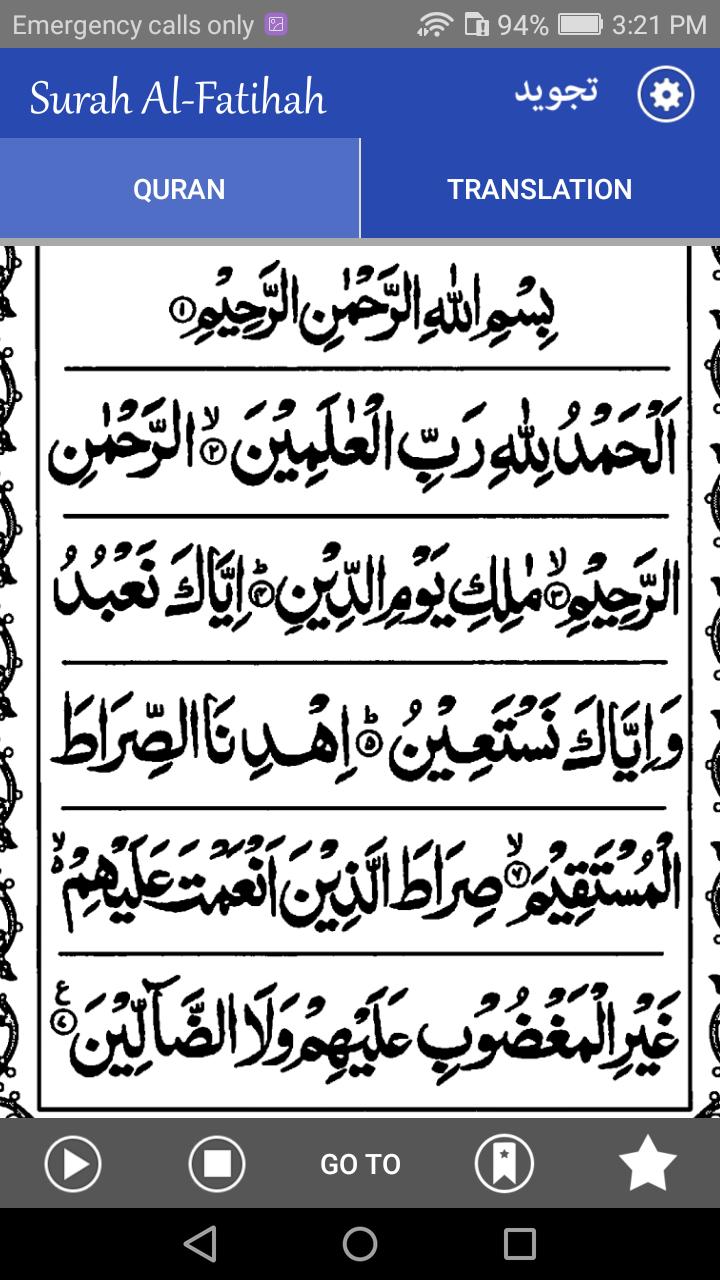 Emergency calls only 94% 3:21 PM
Surah Al-Fatihah تجويد
QURAN TRANSLATION
بِسْمِ اللهِ الرَّحْمٰنِ الرَّحِيْمِ ۝۱
اَلْحَمْدُ لِلّٰهِ رَبِّ الْعٰلَمِيْنَ ۙ۝۲ الرَّحْمٰنِ
الرَّحِيْمِ ۙ۝۳ مٰلِكِ يَوْمِ الدِّيْنِ ؕ۝۴ اِيَّاكَ نَعْبُدُ
وَاِيَّاكَ نَسْتَعِيْنُ ؕ۝۵ اِهْدِنَا الصِّرَاطَ
الْمُسْتَقِيْمَ ۙ۝۶ صِرَاطَ الَّذِيْنَ اَنْعَمْتَ عَلَيْهِمْ ۙ۵
غَيْرِ الْمَغْضُوْبِ عَلَيْهِمْ وَلَا الضَّآلِّيْنَ ۝۷ ع
GO TO